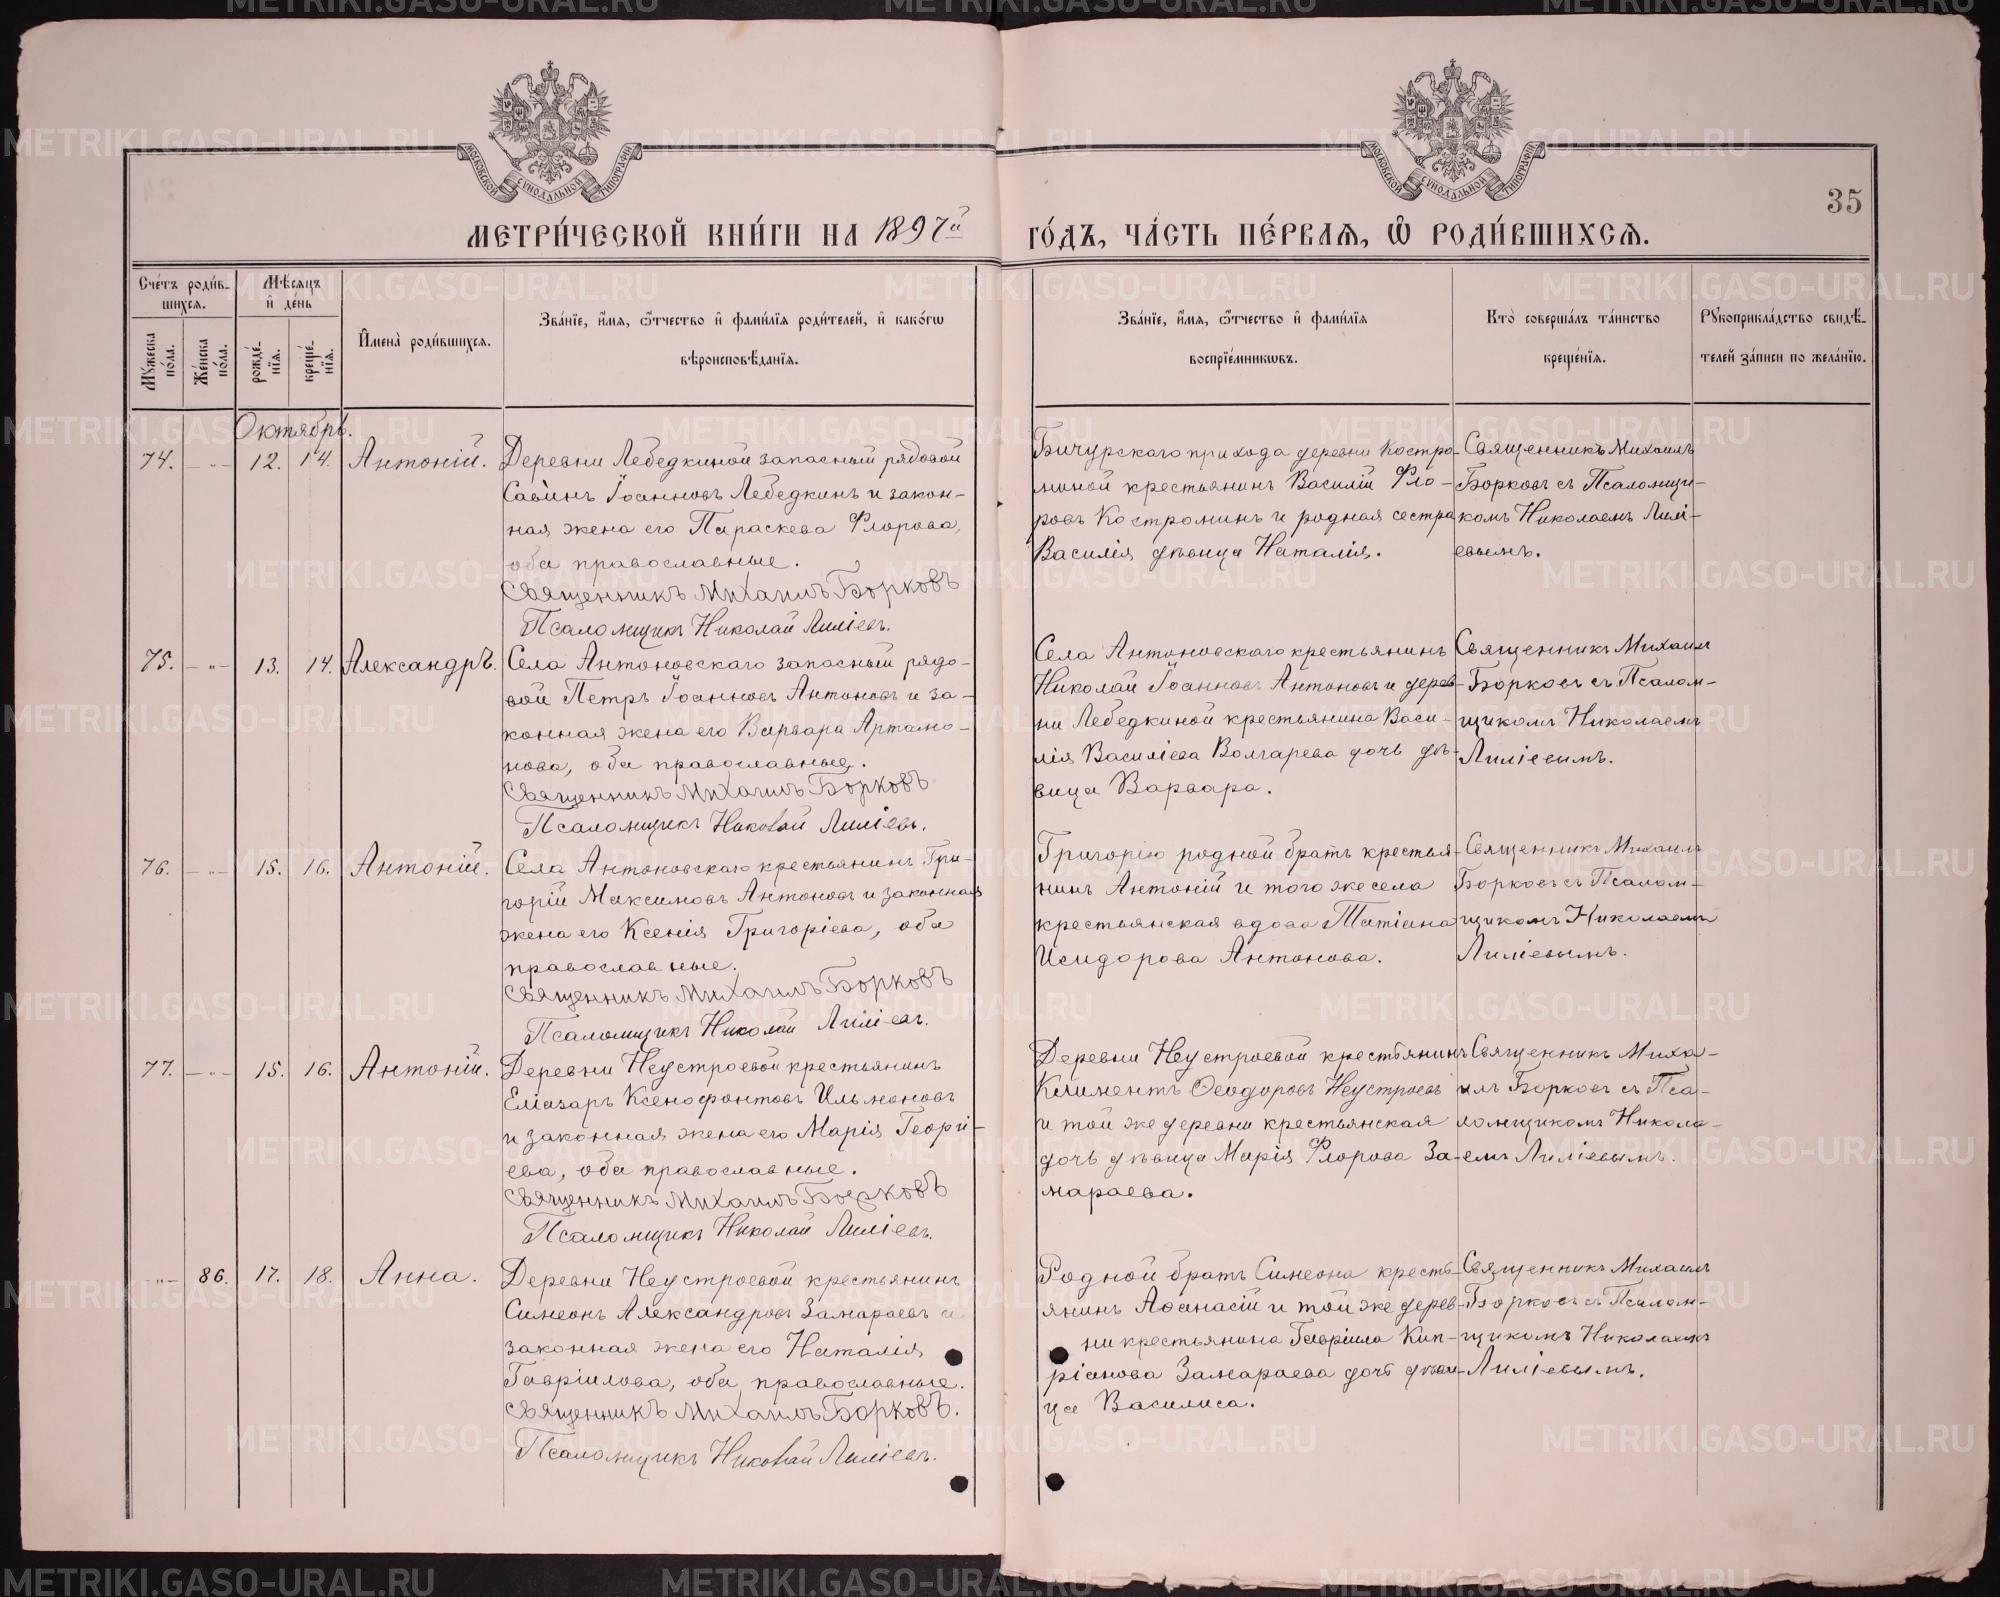 МОСКОВСКОЙ СѴНОДАЛЬНОЙ ТИПОГРАФІИ
МОСКОВСКОЙ СѴНОДАЛЬНОЙ ТИПОГРАФІИ
35
МЕТРИ́ЧЕСКОЙ КНИ́ГИ НА 1897й ГО́ДЪ, ЧА́СТЬ ПЕ́РВАѦ, Ѡ РОДИ́ВШИХСѦ.
Сче́тъ роди́в-
шихсѧ.
Мѣ́сѧцъ
и҆ де́нь
Мꙋ́жеска
по́ла.
Же́нска
по́ла.
рожде́-
нїѧ.
креще́-
нїѧ.
И҆мена̀ роди́вшихсѧ.
Зва́нїе, и҆́мѧ, ѻ҆́тчество и҆ фами́лїѧ роди́телей, и҆ како́гѡ
вѣроисповѣ́данїѧ.
Зва́нїе, и҆́мѧ, ѻ҆́тчество и҆ фами́лїѧ
воспрїе́мникѡвъ.
Кто̀ соверша́лъ та́инство
креще́нїѧ.
Рꙋкоприкла́дство свидѣ́-
телей за́писи по жела́нїю.
Октябрь.
74. — „ — 12. 14. Антоній.
Деревни Лебедкиной запасный рядовой
Савинъ Іоанновъ Лебедкинъ и закон-
ная жена его Параскева Флорова,
оба православные.
Священникъ Михаилъ Борковъ
Псаломщикъ Николай Лиліевъ.
Бичурскаго прихода деревни Костро-
миной крестьянинъ Василій Фло-
ровъ Костроминъ и родная сестра
Василія дѣвица Наталія.
Священникъ Михаилъ
Борковъ съ Псаломщи-
комъ Николаемъ Лилі-
евымъ.
75. — „ — 13. 14. Александръ.
Села Антоновскаго запасный рядо-
вой Петръ Іоанновъ Антоновъ и за-
конная жена его Варвара Артамо-
нова, оба православные.
Священникъ Михаилъ Борковъ
Псаломщикъ Николай Лиліевъ.
Села Антоновскаго крестьянинъ
Николай Іоанновъ Антоновъ и дерев-
ни Лебедкиной крестьянина Васи-
лія Василіева Волгарева дочь дѣ-
вица Варвара.
Священникъ Михаилъ
Борковъ съ Псалом-
щикомъ Николаемъ
Лиліевымъ.
76. — „ — 15. 16. Антоній.
Села Антоновскаго крестьянинъ Гри-
горій Максимовъ Антоновъ и законная
жена его Ксенія Григоріева, оба
православные.
Священникъ Михаилъ Борковъ
Псаломщикъ Николай Лиліевъ.
Григорію родной братъ крестья-
нинъ Антоній и того же села
крестьянская вдова Татіана
Исидорова Антонова.
Священникъ Михаилъ
Борковъ съ Псалом-
щикомъ Николаемъ
Лиліевымъ.
77. — „ — 15. 16. Антоній.
Деревни Неустроевой крестьянинъ
Еліазаръ Ксенофонтовъ Ильмоновъ
и законная жена его Марія Георгі-
ева, оба православные.
Священникъ Михаилъ Борковъ
Псаломщикъ Николай Лиліевъ.
Деревни Неустроевой крестьянинъ
Климентъ Ѳеодоровъ Неустроевъ
и той же деревни крестьянская
дочь дѣвица Марія Флорова За-
мараева.
Священникъ Миха-
илъ Борковъ съ Пса-
ломщикомъ Никола-
емъ Лиліевымъ.
— „ — 86. 17. 18. Анна.
Деревни Неустроевой крестьянинъ
Симеонъ Александровъ Замараевъ и
законная жена его Наталія
Гавріилова, оба православные.
Священникъ Михаилъ Борковъ.
Псаломщикъ Николай Лиліевъ.
Родной братъ Симеона кресть-
янинъ Аѳанасій и той же дерев-
ни крестьянина Гавріила Кип-
ріанова Замараева дочь дѣви-
ца Василиса.
Священникъ Михаилъ
Борковъ съ Псалом-
щикомъ Николаемъ
Лиліевымъ.
METRIKI.GASO-URAL.RU